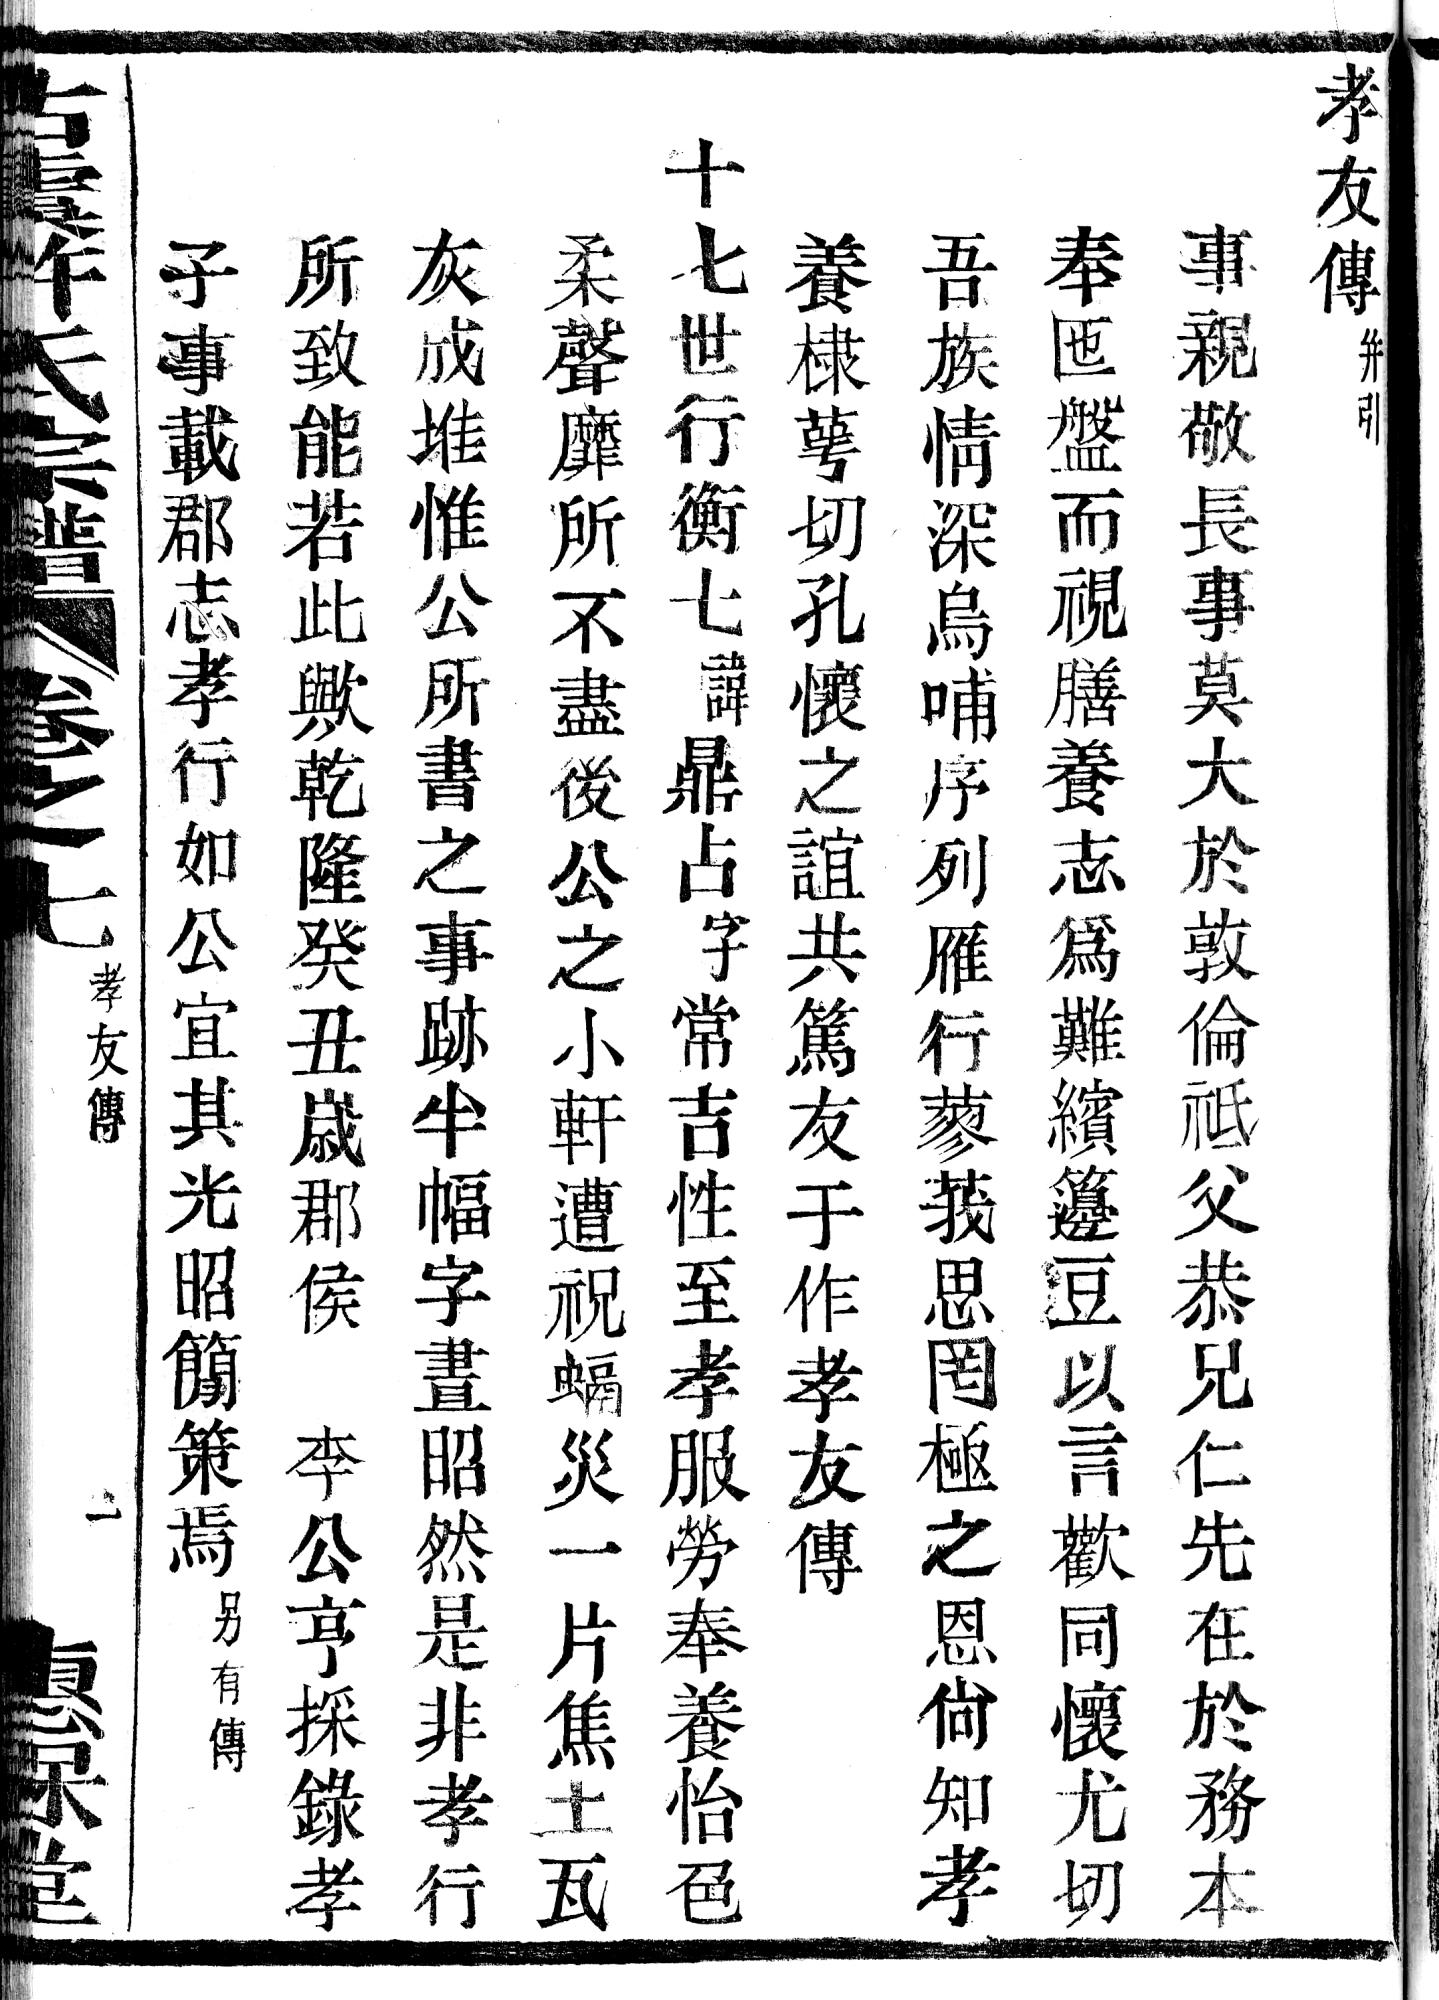 孝友傳并引
事親敬長事莫大於敦倫祗父恭兄仁先在於務本
奉匜盤而視膳養志爲難繽籩豆以言歡同懷尤切
吾族情深烏哺序列雁行蓼莪思罔極之恩尙知孝
養棣萼切孔懷之誼共篤友于作孝友傳
十七世行衡七諱鼎占字常吉性至孝服勞奉養怡色
柔聲靡所不盡後公之小軒遭祝蝠災一片焦土瓦
灰成堆惟公所書之事跡半幅字晝昭然是非孝行
所致能若此歟乾隆癸丑歲郡侯 李公亨採錄孝
子事載郡志孝行如公宜其光昭簡策焉另有傳
古虞許氏宗譜 卷之七 孝友傳 一 惠保堂